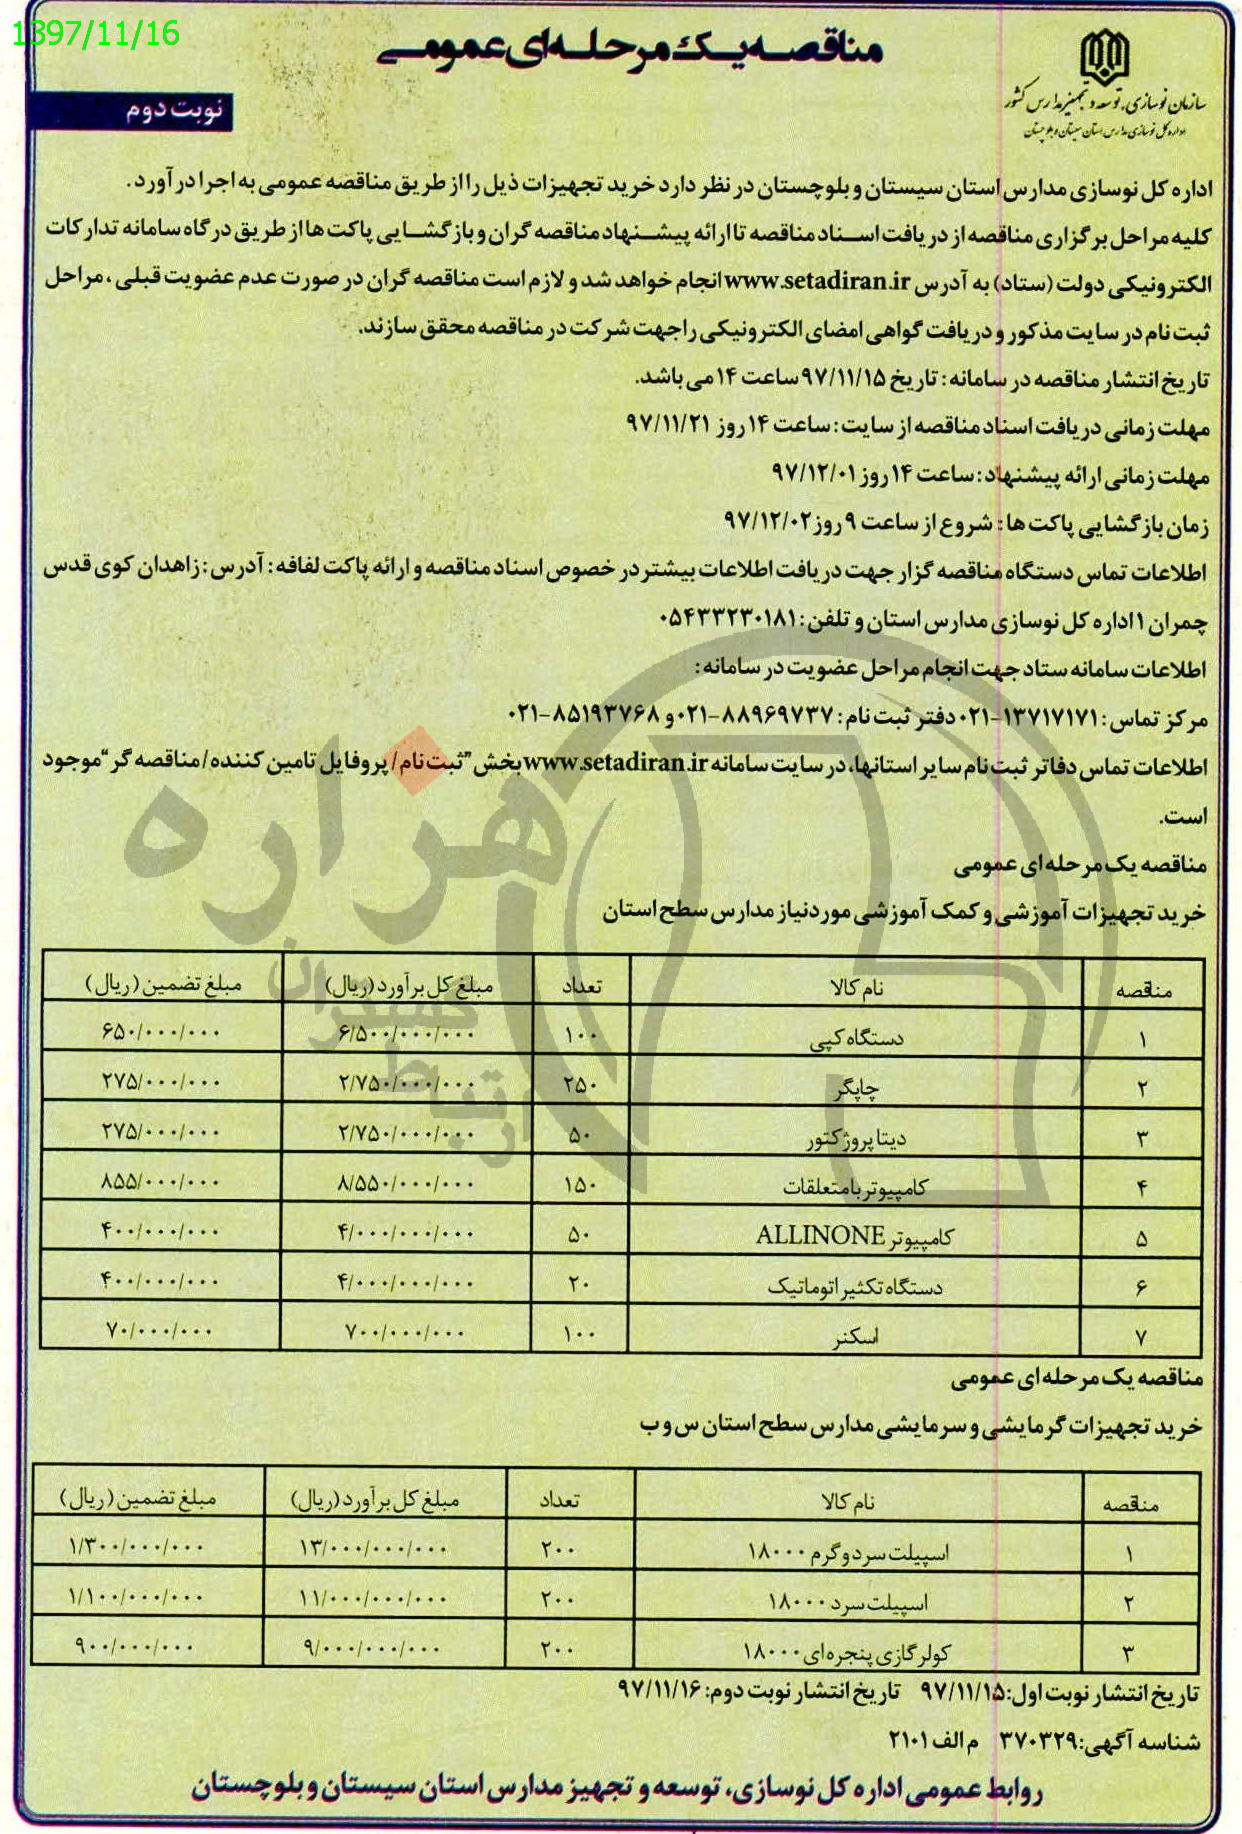 1397/11/16
مناقصه یک مرحله‌ای عمومی
سازمان نوسازی، توسعه و تجهیز مدارس کشور
اداره کل نوسازی مدارس استان سیستان و بلوچستان
نوبت دوم
اداره کل نوسازی مدارس استان سیستان و بلوچستان در نظر دارد خرید تجهیزات ذیل را از طریق مناقصه عمومی به اجرا در آورد.
کلیه مراحل برگزاری مناقصه از دریافت اسناد مناقصه تا ارائه پیشنهاد مناقصه گران و بازگشایی پاکت ها از طریق درگاه سامانه تدارکات
الکترونیکی دولت (ستاد) به آدرس www.setadiran.ir انجام خواهد شد و لازم است مناقصه گران در صورت عدم عضویت قبلی، مراحل
ثبت نام در سایت مذکور و دریافت گواهی امضای الکترونیکی را جهت شرکت در مناقصه محقق سازند.
تاریخ انتشار مناقصه در سامانه: تاریخ ۹۷/۱۱/۱۵ ساعت ۱۴ می باشد.
مهلت زمانی دریافت اسناد مناقصه از سایت: ساعت ۱۴ روز ۹۷/۱۱/۲۱
مهلت زمانی ارائه پیشنهاد: ساعت ۱۴ روز ۹۷/۱۲/۰۱
زمان بازگشایی پاکت ها: شروع از ساعت ۹ روز ۹۷/۱۲/۰۲
اطلاعات تماس دستگاه مناقصه گزار جهت دریافت اطلاعات بیشتر در خصوص اسناد مناقصه و ارائه پاکت لفافه: آدرس: زاهدان کوی قدس
چمران ۱ اداره کل نوسازی مدارس استان و تلفن: ۰۵۴۳۳۲۳۰۱۸۱
اطلاعات سامانه ستاد جهت انجام مراحل عضویت در سامانه:
مرکز تماس: ۱۳۷۱۷۱۷۱-۰۲۱ دفتر ثبت نام: ۸۸۹۶۹۷۳۷-۰۲۱ و ۸۵۱۹۳۷۶۸-۰۲۱
اطلاعات تماس دفاتر ثبت نام سایر استانها، در سایت سامانه www.setadiran.ir بخش "ثبت نام/پروفایل تامین کننده/مناقصه گر" موجود
است.
مناقصه یک مرحله ای عمومی
خرید تجهیزات آموزشی و کمک آموزشی مورد نیاز مدارس سطح استان
مناقصه نام کالا تعداد مبلغ کل برآورد (ریال) مبلغ تضمین (ریال)
۱ دستگاه کپی ۱۰۰ ۶/۵۰۰/۰۰۰/۰۰۰ ۶۵۰/۰۰۰/۰۰۰
۲ چاپگر ۲۵۰ ۲/۷۵۰/۰۰۰/۰۰۰ ۲۷۵/۰۰۰/۰۰۰
۳ دیتا پروژکتور ۵۰ ۲/۷۵۰/۰۰۰/۰۰۰ ۲۷۵/۰۰۰/۰۰۰
۴ کامپیوتر با متعلقات ۱۵۰ ۸/۵۵۰/۰۰۰/۰۰۰ ۸۵۵/۰۰۰/۰۰۰
۵ کامپیوتر ALLINONE ۵۰ ۴/۰۰۰/۰۰۰/۰۰۰ ۴۰۰/۰۰۰/۰۰۰
۶ دستگاه تکثیر اتوماتیک ۲۰ ۴/۰۰۰/۰۰۰/۰۰۰ ۴۰۰/۰۰۰/۰۰۰
۷ اسکنر ۱۰۰ ۷۰۰/۰۰۰/۰۰۰ ۷۰/۰۰۰/۰۰۰
مناقصه یک مرحله ای عمومی
خرید تجهیزات گرمایشی و سرمایشی مدارس سطح استان س و ب
مناقصه نام کالا تعداد مبلغ کل برآورد (ریال) مبلغ تضمین (ریال)
۱ اسپیلت سرد و گرم ۱۸۰۰۰ ۲۰۰ ۱۳/۰۰۰/۰۰۰/۰۰۰ ۱/۳۰۰/۰۰۰/۰۰۰
۲ اسپیلت سرد ۱۸۰۰۰ ۲۰۰ ۱۱/۰۰۰/۰۰۰/۰۰۰ ۱/۱۰۰/۰۰۰/۰۰۰
۳ کولر گازی پنجره ای ۱۸۰۰۰ ۲۰۰ ۹/۰۰۰/۰۰۰/۰۰۰ ۹۰۰/۰۰۰/۰۰۰
تاریخ انتشار نوبت اول: ۹۷/۱۱/۱۵ تاریخ انتشار نوبت دوم: ۹۷/۱۱/۱۶
شناسه آگهی: ۳۷۰۳۲۹ م الف ۲۱۰۱
روابط عمومی اداره کل نوسازی، توسعه و تجهیز مدارس استان سیستان و بلوچستان
هزاره